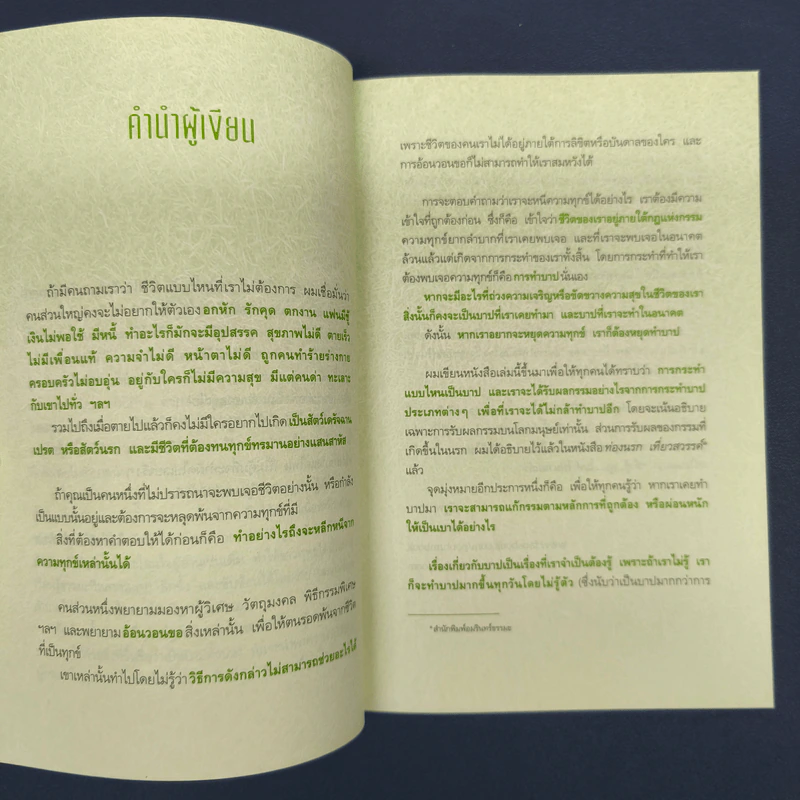 คำนำผู้เขียน
ถ้ามีคนถามเราว่า ชีวิตแบบไหนที่เราไม่ต้องการ ผมเชื่อมั่นว่า
คนส่วนใหญ่คงจะไม่อยากให้ตัวเอง อกหัก รักคุด ตกงาน แฟนมีชู้
เงินไม่พอใช้ มีหนี้ ทำอะไรก็มักจะมีอุปสรรค สุขภาพไม่ดี ตายเร็ว
ไม่มีเพื่อนแท้ ความจำไม่ดี หน้าตาไม่ดี ถูกคนทำร้ายร่างกาย
ครอบครัวไม่อบอุ่น อยู่กับใครก็ไม่มีความสุข มีแต่คนด่า ทะเลาะ
กับเขาไปทั่ว ฯลฯ
รวมไปถึงเมื่อตายไปแล้วก็คงไม่มีใครอยากไปเกิดเป็นสัตว์เดรัจฉาน
เปรต หรือสัตว์นรก และมีชีวิตที่ต้องทนทุกข์ทรมานอย่างแสนสาหัส
ถ้าคุณเป็นคนหนึ่งที่ไม่ปรารถนาจะพบเจอชีวิตอย่างนั้น หรือกำลัง
เป็นแบบนั้นอยู่และต้องการจะหลุดพ้นจากความทุกข์ที่มี
สิ่งที่ต้องหาคำตอบให้ได้ก่อนก็คือ ทำอย่างไรถึงจะหลีกหนีจาก
ความทุกข์เหล่านั้นได้
คนส่วนหนึ่งพยายามมองหาผู้วิเศษ วัตถุมงคล พิธีกรรมพิเศษ
ฯลฯ และพยายามอ้อนวอนขอสิ่งเหล่านั้น เพื่อให้ตนรอดพ้นจากชีวิต
ที่เป็นทุกข์
เขาเหล่านั้นทำไปโดยไม่รู้ว่า วิธีการดังกล่าวไม่สามารถช่วยอะไรได้
เพราะชีวิตของคนเราไม่ได้อยู่ภายใต้การลิขิตหรือบันดาลของใคร และ
การอ้อนวอนขอก็ไม่สามารถทำให้เราสมหวังได้
การจะตอบคำถามว่าเราจะหนีความทุกข์ได้อย่างไร เราต้องมีความ
เข้าใจที่ถูกต้องก่อน ซึ่งก็คือ เข้าใจว่าชีวิตของเราอยู่ภายใต้กฎแห่งกรรม
ความทุกข์ยากลำบากที่เราเคยพบเจอ และที่เราจะพบเจอในอนาคต
ล้วนแล้วแต่เกิดจากการกระทำของเราทั้งสิ้น โดยการกระทำที่ทำให้เรา
ต้องพบเจอความทุกข์ก็คือ การทำบาป นั่นเอง
หากจะมีอะไรที่ถ่วงความเจริญหรือขัดขวางความสุขในชีวิตของเรา
สิ่งนั้นก็คงจะเป็นบาปที่เราเคยทำมา และบาปที่เราจะทำในอนาคต
ดังนั้น หากเราอยากจะหยุดความทุกข์ เราก็ต้องหยุดทำบาป
ผมเขียนหนังสือเล่มนี้ขึ้นมาเพื่อให้ทุกคนได้ทราบว่า การกระทำ
แบบไหนเป็นบาป และเราจะได้รับผลกรรมอย่างไรจากการกระทำบาป
ประเภทต่างๆ เพื่อที่เราจะได้ไม่กล้าทำบาปอีก โดยจะเน้นอธิบาย
เฉพาะการรับผลกรรมบนโลกมนุษย์เท่านั้น ส่วนการรับผลของกรรมที่
เกิดขึ้นในนรก ผมได้อธิบายไว้แล้วในหนังสือ ท่องนรก เที่ยวสวรรค์*
แล้ว
จุดมุ่งหมายอีกประการหนึ่งก็คือ เพื่อให้ทุกคนรู้ว่า หากเราเคยทำ
บาปมา เราจะสามารถแก้กรรมตามหลักการที่ถูกต้อง หรือผ่อนหนัก
ให้เป็นเบาได้อย่างไร
เรื่องเกี่ยวกับบาปเป็นเรื่องที่เราจำเป็นต้องรู้ เพราะถ้าเราไม่รู้ เรา
ก็จะทำบาปมากขึ้นทุกวันโดยไม่รู้ตัว (ซึ่งนับว่าเป็นบาปมากกว่าการ
*สำนักพิมพ์อมรินทร์ธรรมะ